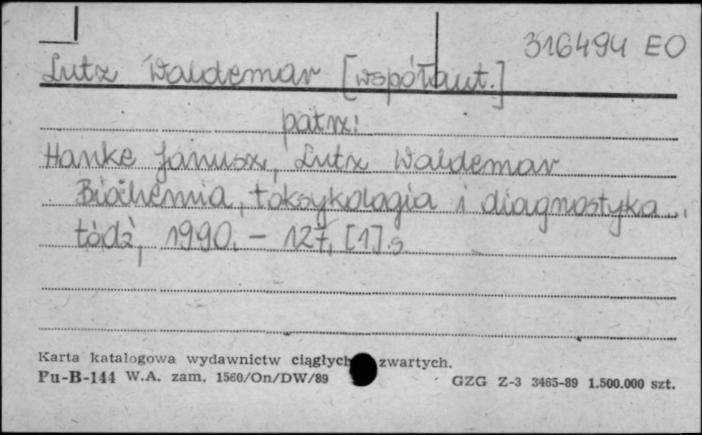 316494 EO
Lutz Waldemar [współaut.]
patrz:
Hanke Janusz, Lutz Waldemar
Biochemia, toksykologia i diagnostyka...
Łódź, 1990. - 127, [1] s
Karta katalogowa wydawnictw ciągłych zwartych.
Pu-B-144 W.A. zam. 1560/On/DW/89 GZG Z-3 3465-89 1.500.000 szt.